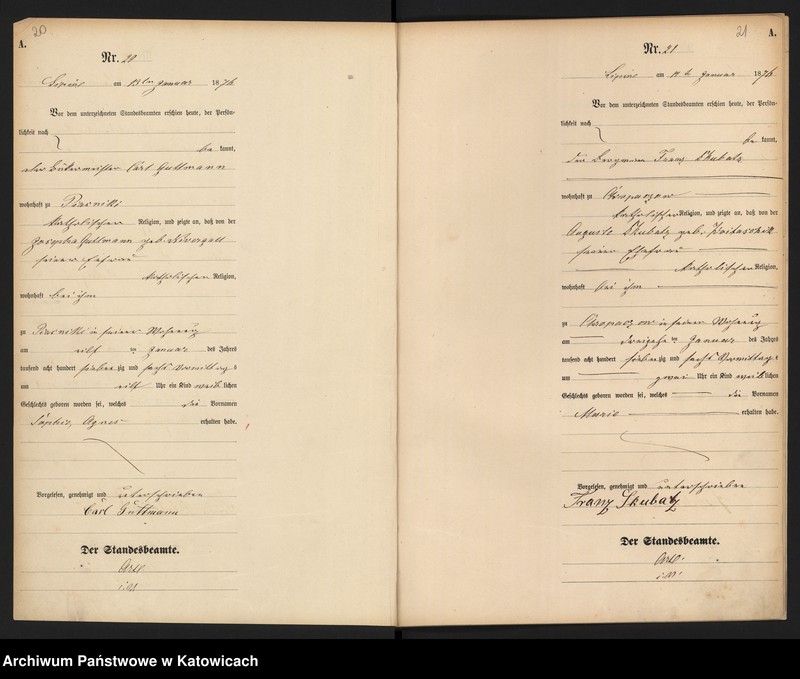 20
A.
Nr. 20
Lipine am 13ten Januar 1876
Vor dem unterzeichneten Standesbeamten erschien heute, der Persön-
lichkeit nach
be kannt,
der Carl Guttmann
wohnhaft zu Piasniki
katholischer Religion, und zeigte an, daß von der
Guttmann geb.
seiner Ehefrau
katholischer Religion,
wohnhaft bei ihm
zu Piasniki in seiner Wohnung
am eilf ten Januar des Jahres
tausend acht hundert sieben zig und sechs Vormittags
um eilf Uhr ein Kind weib lichen
Geschlechts geboren worden sei, welches die Vornamen
Sophie, Agnes erhalten habe.
Vorgelesen, genehmigt und unterschrieben
Carl Guttmann
Der Standesbeamte.
21
A.
Nr. 21
Lipine am Januar 1876
Vor dem unterzeichneten Standesbeamten erschien heute, der Persön-
lichkeit nach
be kannt,
der Bergmann Franz Skubatz
wohnhaft zu Chropaczow
katholischer Religion, und zeigte an, daß von der
Auguste Skubatz geb.
seiner Ehefrau
katholischer Religion,
wohnhaft bei ihm
zu Chropaczow in seiner Wohnung
am ten Januar des Jahres
tausend acht hundert sieben zig und sechs Vormittags
um zwei Uhr ein Kind weib lichen
Geschlechts geboren worden sei, welches die Vornamen
Marie erhalten habe.
Vorgelesen, genehmigt und unterschrieben
Franz Skubatz
Der Standesbeamte.
Archiwum Państwowe w Katowicach